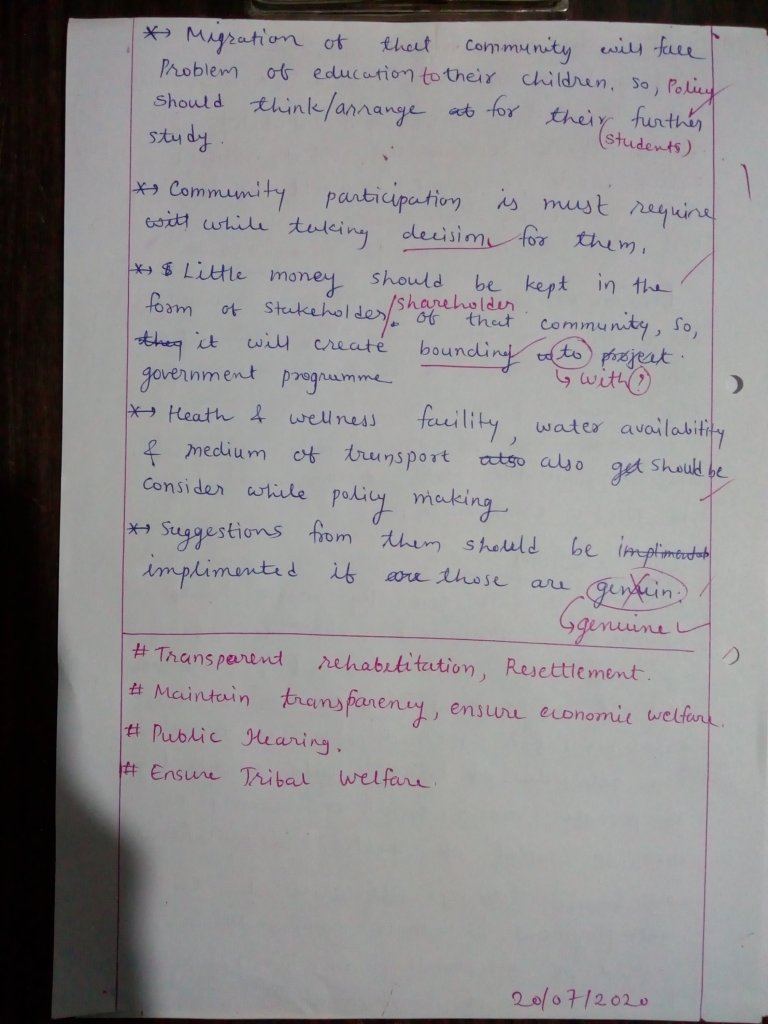 *→ Migration of that community will face
Problem of education to their children. so, Policy
should think/arrange at for their further
(students)
study.
*→ Community participation is must require
will while taking decision for them.
*→ $ Little money should be kept in the
form of stakeholder/shareholder. of that community, so,
they it will create bounding to project.
↳ with ?
government programme
*→ Heath & wellness facility, water availability
& medium of transport also also get should be
consider while policy making
*→ Suggestions from them should be
implimented if are those are genuin.
↳ genuine
# Transparent rehabetitation, Resettlement.
# Maintain transparency, ensure economic welfare.
# Public Hearing.
# Ensure Tribal Welfare.
20/07/2020